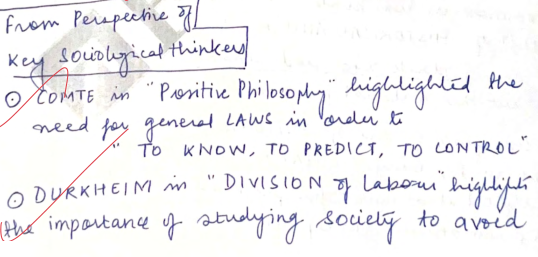 From Perspective of
Key Sociological thinkers
⊙ COMTE in "Positive Philosophy" highlighted the
need for general LAWS in order to
" TO KNOW, TO PREDICT, TO CONTROL"
⊙ DURKHEIM in "DIVISION of Labour" highlights
the importance of studying society to avoid